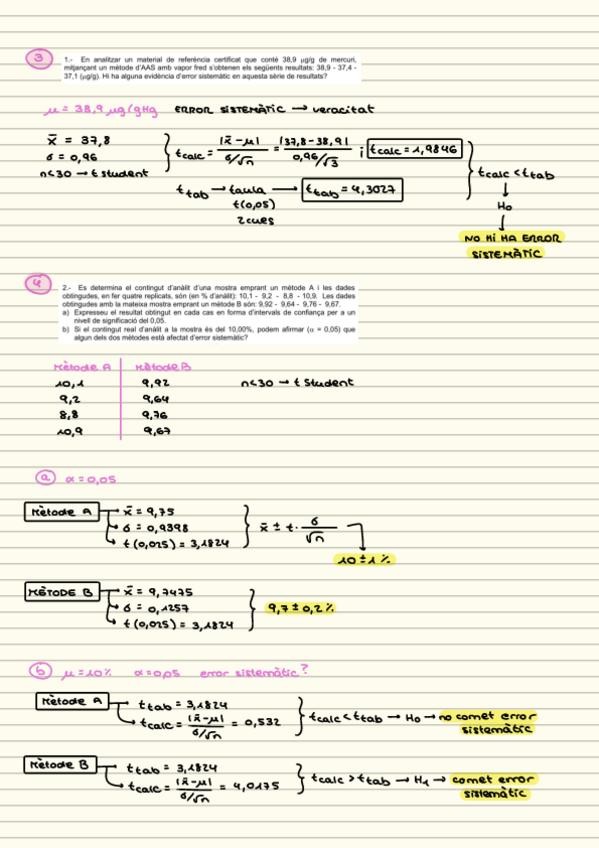 3
1.- En analitzar un material de referència certificat que conté 38,9 µg/g de mercuri,
mitjançant un mètode d'AAS amb vapor fred s'obtenen els següents resultats: 38,9 - 37,4 -
37,1 (µg/g). Hi ha alguna evidència d'error sistemàtic en aquesta sèrie de resultats?
µ = 38,9 µg/g Hg ERROR SISTEMÀTIC → veracitat
x̄ = 37,8
σ = 0,96
n<30 → t student
tcalc = |x̄-µ| / σ/√n = |37,8-38,9| / 0,96/√3 ; tcalc = 1,9846
ttab → taula → ttab = 4,3027
t(0,05)
2 cues
tcalc < ttab
↓
H0
NO HI HA ERROR
SISTEMÀTIC
4
2.- Es determina el contingut d'anàlit d'una mostra emprant un mètode A i les dades
obtingudes, en fer quatre replicats, són (en % d'anàlit): 10,1 - 9,2 - 8,8 - 10,9. Les dades
obtingudes amb la mateixa mostra emprant un mètode B són: 9,92 - 9,64 - 9,76 - 9,67.
a) Expresseu el resultat obtingut en cada cas en forma d'intervals de confiança per a un
nivell de significació del 0,05.
b) Si el contingut real d'anàlit a la mostra és del 10,00%, podem afirmar (α = 0,05) que
algun dels dos mètodes està afectat d'error sistemàtic?
Mètode A Mètode B
10,1 9,92 n<30 → t Student
9,2 9,64
8,8 9,76
10,9 9,67
a α = 0,05
Mètode A → x̄ = 9,75
σ = 0,9398
t (0,025) = 3,1824
x̄ ± t · σ/√n
10 ± 1 %
MÈTODE B → x̄ = 9,7475
σ = 0,1257
t (0,025) = 3,1824
9,7 ± 0,2 %
b µ = 10% α = 0,05 error sistemàtic?
Mètode A → ttab = 3,1824
tcalc = |x̄-µ| / σ/√n = 0,532
tcalc < ttab → H0 → no comet error
sistemàtic
Mètode B → ttab = 3,1824
tcalc = |x̄-µ| / σ/√n = 4,0175
tcalc > ttab → H1 → comet error
sistemàtic